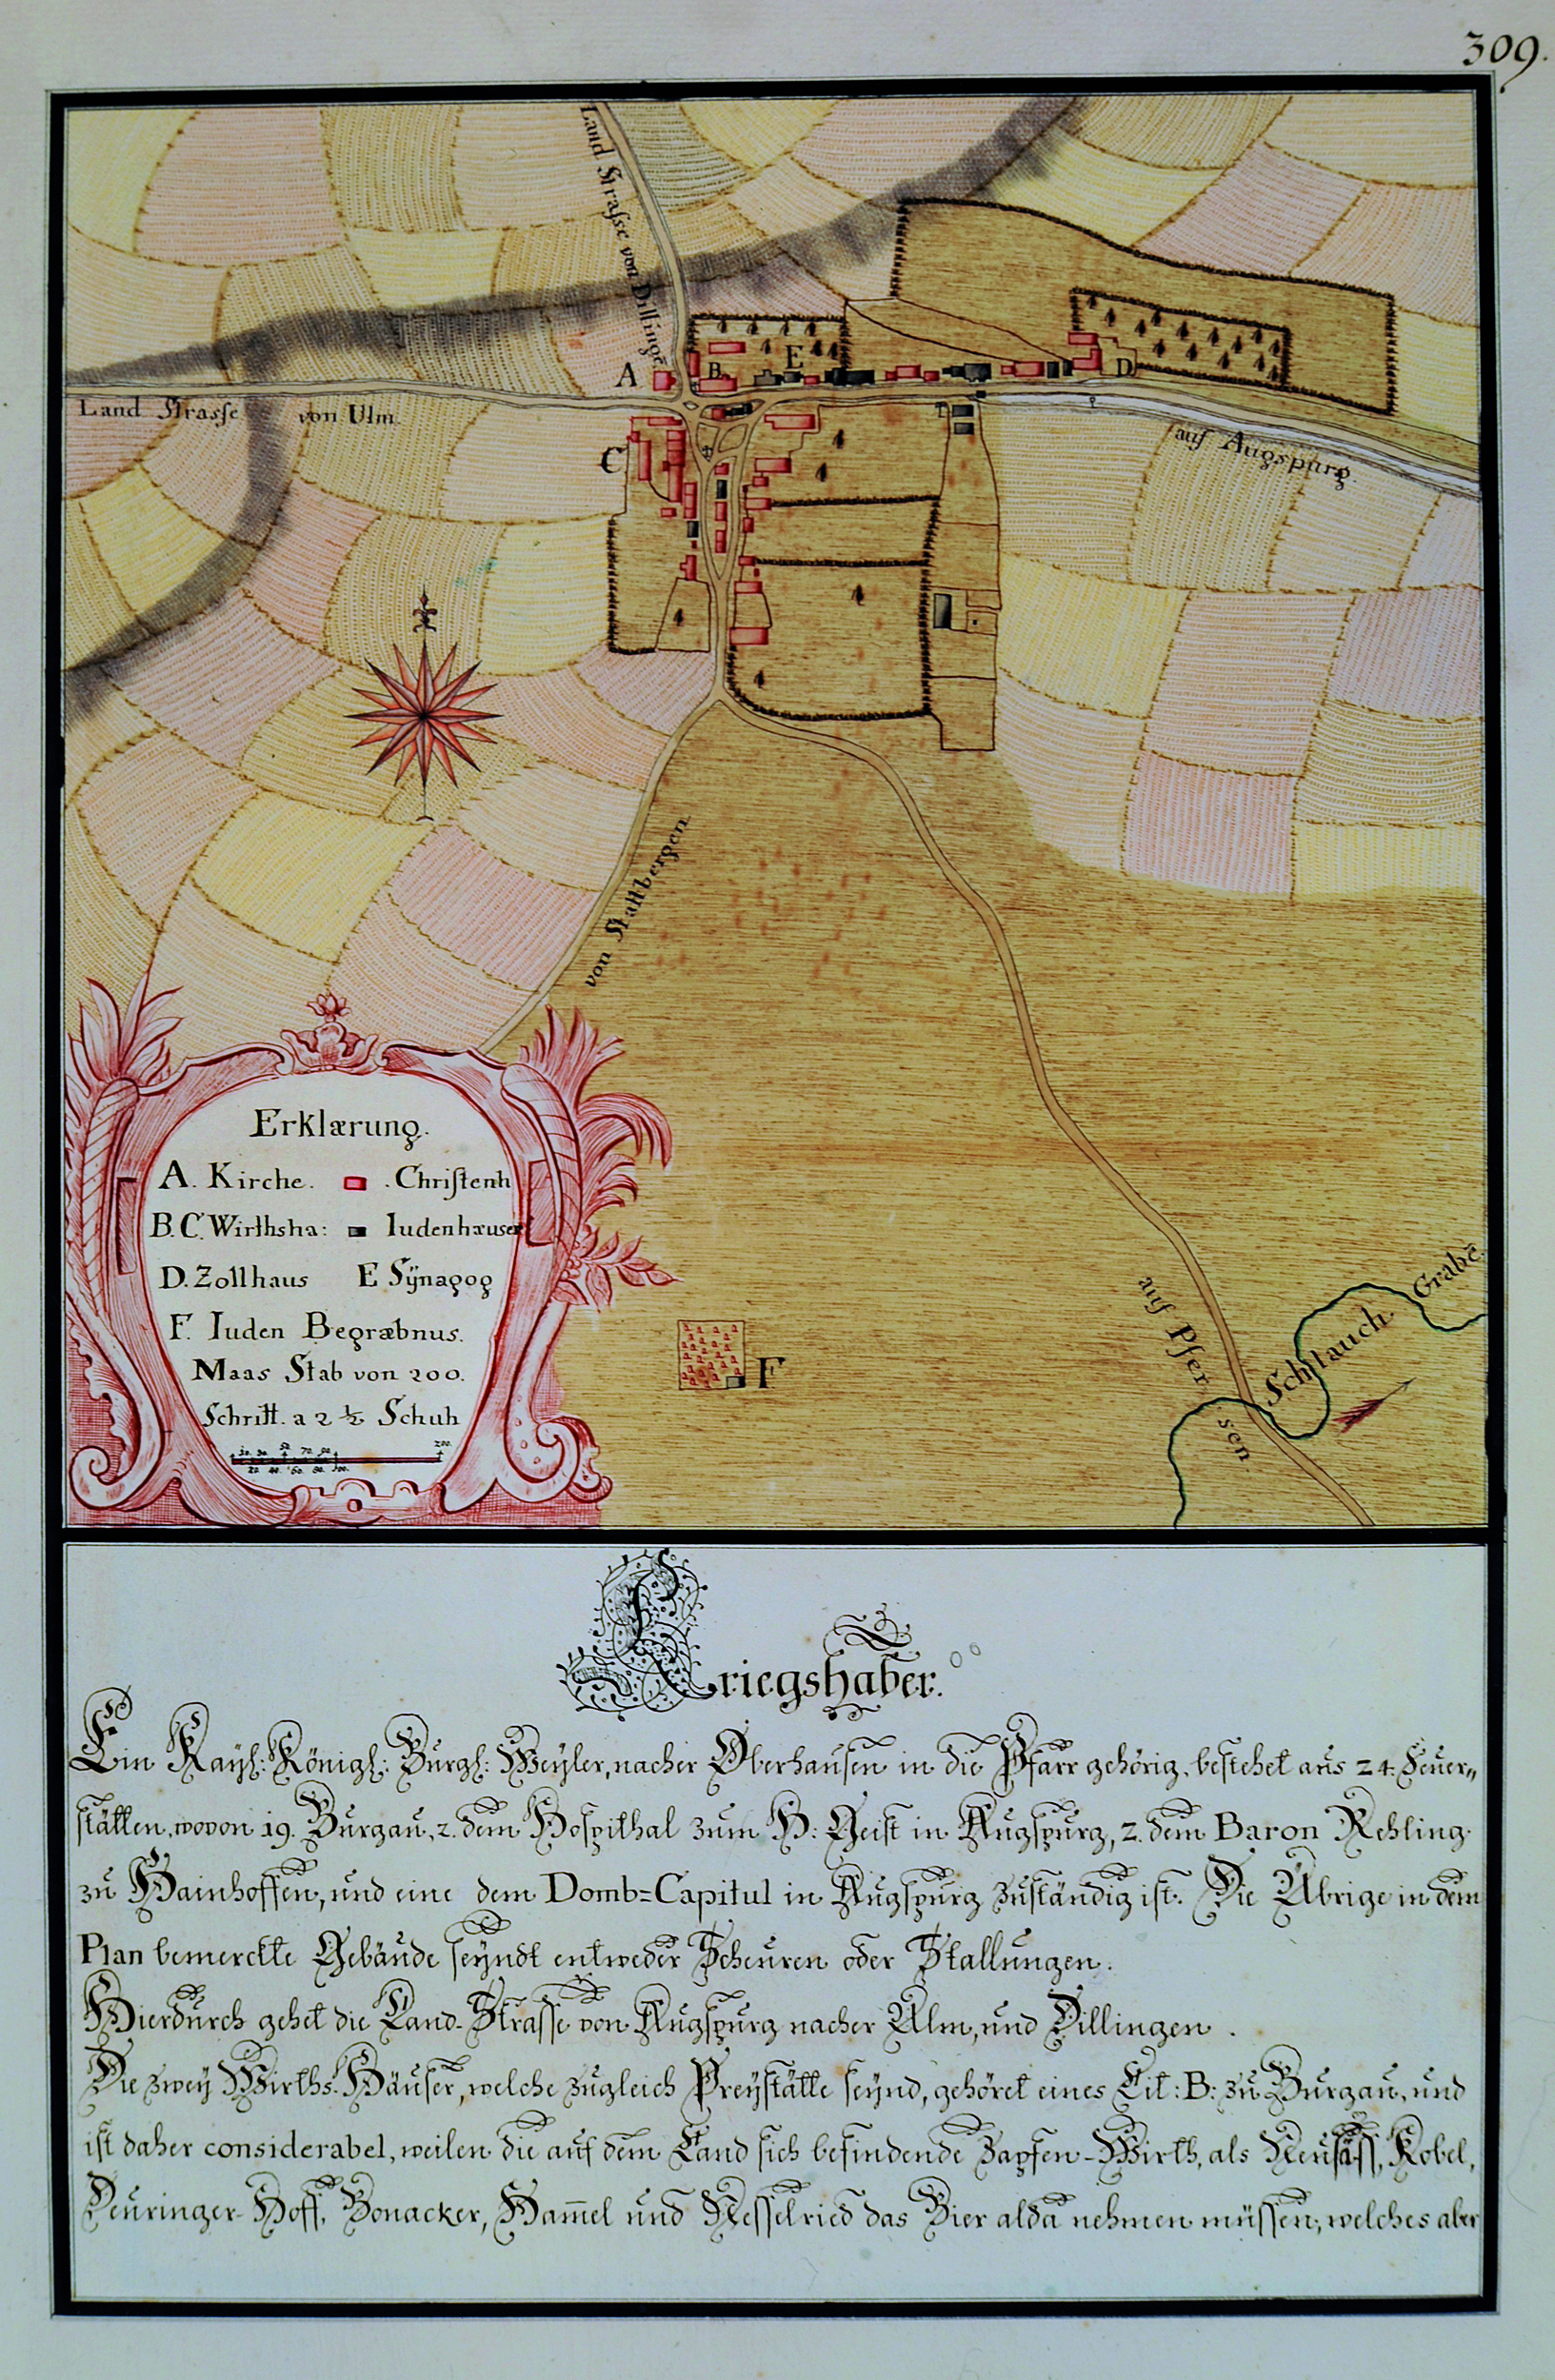 309.
Land Strasse von Dillingē
A
B.
E
D
Land Strasse von Ulm.
C
auf Augspurg.
von Stattbergen.
Erklærung.
A. Kirche. . Christenh
B.C. Wirthsha: Iudenhæuser
D. Zollhaus E Sÿnagog
F. Iuden Begræbnus.
Maas Stab von 200.
Schritt. a 2 ½ Schuh
F
auf Pfersen
Schlauch Grabē
Kriegshaber.
Ein Kaÿl: Königl: Burgl: Weÿler, nacher Oberhausen in die Pfarr gehörig, bestehet aus 24. Feuer„
stätten, wovon 19. Burgau, 2. dem Hospithal zum H: Geist in Augspurg, 2. dem Baron Rehling
zu Hainhoffen, und eine dem Domb=Capitul in Augspurg zuständig ist. Die Übrige in dem
Plan bemerckte Gebäude seÿndt entweder Scheuren oder Stallungen.
Hierdurch gehet die Land-Strasse von Augspurg nacher Ulm, und Dillingen.
Die zweÿ Wirths-Häuser, welche zugleich Preÿstätte seÿnd, gehöret eines Lit: B: zu Burgau, und
ist daher considerabel, weilen die auf dem Land sich befindende Zapfen-Wirth, als Neusäss, Kobel,
Deuringer-Hoff, Bonacker, Ham̅el und Nesselried das Bier alda nehmen müssen; welches aber